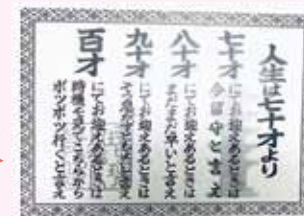 人生は七十才より
七十才 にてお迎えあるときは
今留守と言え
八十才 にてお迎えあるときは
まだまだ早いと言え
九十才 にてお迎えあるときは
そう急がずともよいと言え
百才 にてお迎えあるときは
時機を見てこちらから
ボツボツ行くと言え